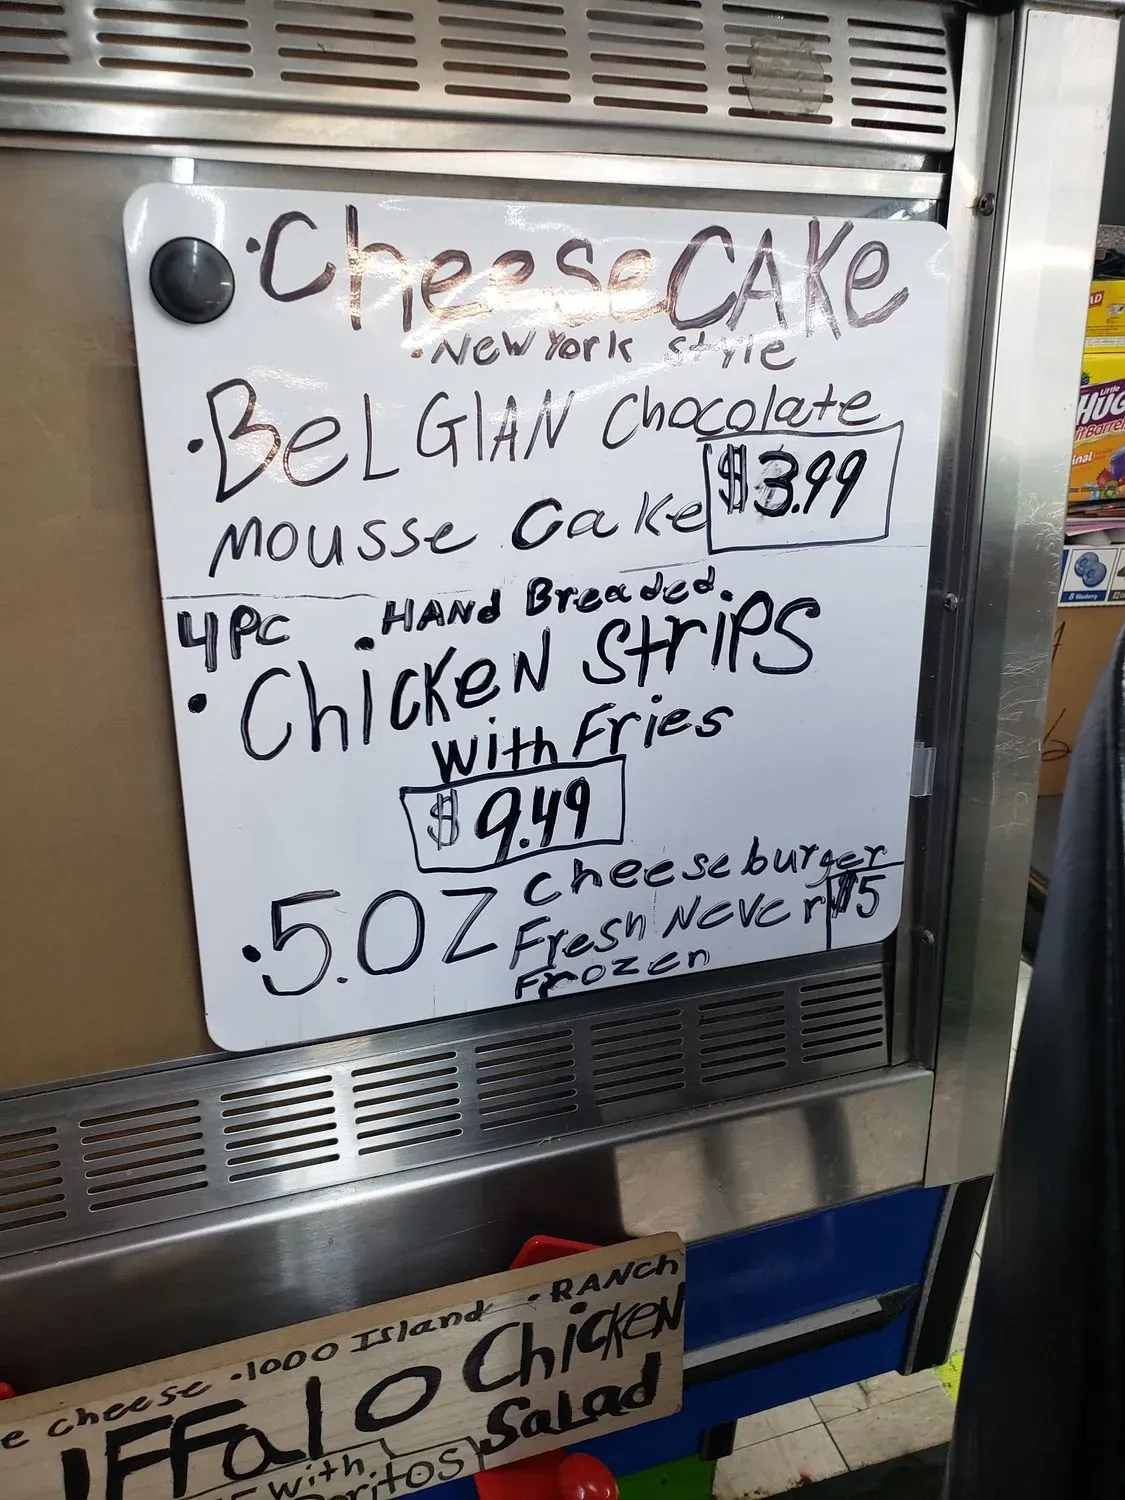 •CheeseCAKe
•New York style
•BeLGIAN Chocolate
$3.99
mousse Cake
4PC •HAND Breaded.
•ChicKeN StriPS
with Fries
$9.49
•5.OZ cheeseburger
Fresh Never $5
Frozen
•RANCH
e cheese •1000 Island
Chicken
Salad
with
Little
HUG